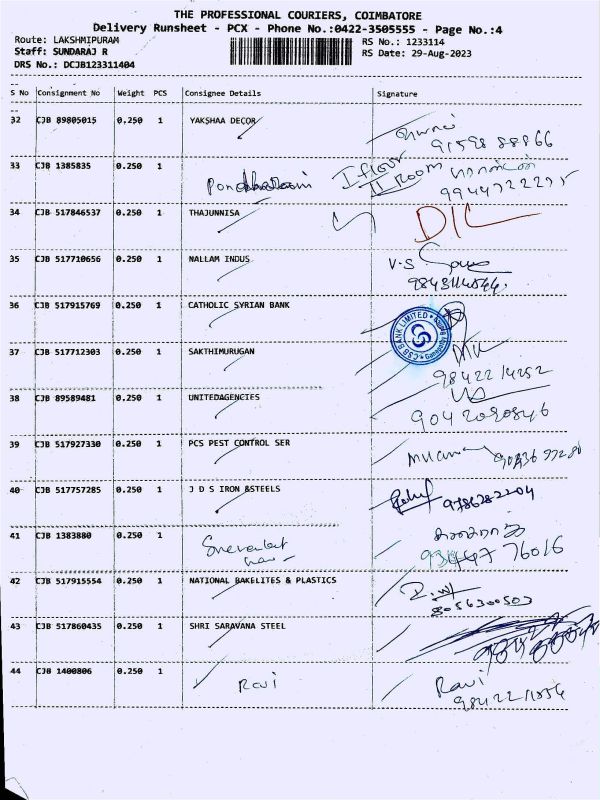 THE PROFESSIONAL COURIERS, COIMBATORE
Delivery Runsheet - PCX - Phone No.:0422-3505555 - Page No.:4
Route: LAKSHMIPURAM
RS No.: 1233114
Staff: SUNDARAJ R
RS Date: 29-Aug-2023
DRS No.: DCJB123311404
S No Consignment No Weight PCS Consignee Details Signature
32 CJB 89805015 0.250 1 YAKSHAA DECOR
91598 88866
33 CJB 1385835 0.250 1 I floor
11 Room
34 CJB 517846537 0.250 1 THAJUNNISA D/L
35 CJB 517710656 0.250 1 NALLAM INDUS V.S
36 CJB 517915769 0.250 1 CATHOLIC SYRIAN BANK
CSB BANK LIMITED
37 CJB 517712303 0.250 1 SAKTHIMURUGAN
98422 14252
38 CJB 89589481 0.250 1 UNITEDAGENCIES
39 CJB 517927330 0.250 1 PCS PEST CONTROL SER
40 CJB 517757285 0.250 1 J D S IRON &STEELS
9786282204
41 CJB 1383880 0.250 1
42 CJB 517915554 0.250 1 NATIONAL BAKELITES & PLASTICS
8056300503
43 CJB 517860435 0.250 1 SHRI SARAVANA STEEL
44 CJB 1400806 0.250 1 Ravi Ravi